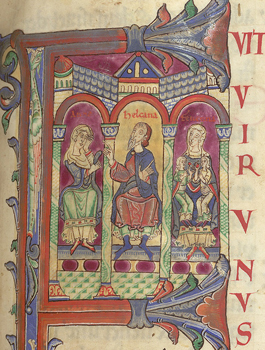 VIT
V
I
R
V
N
V
S
helcana